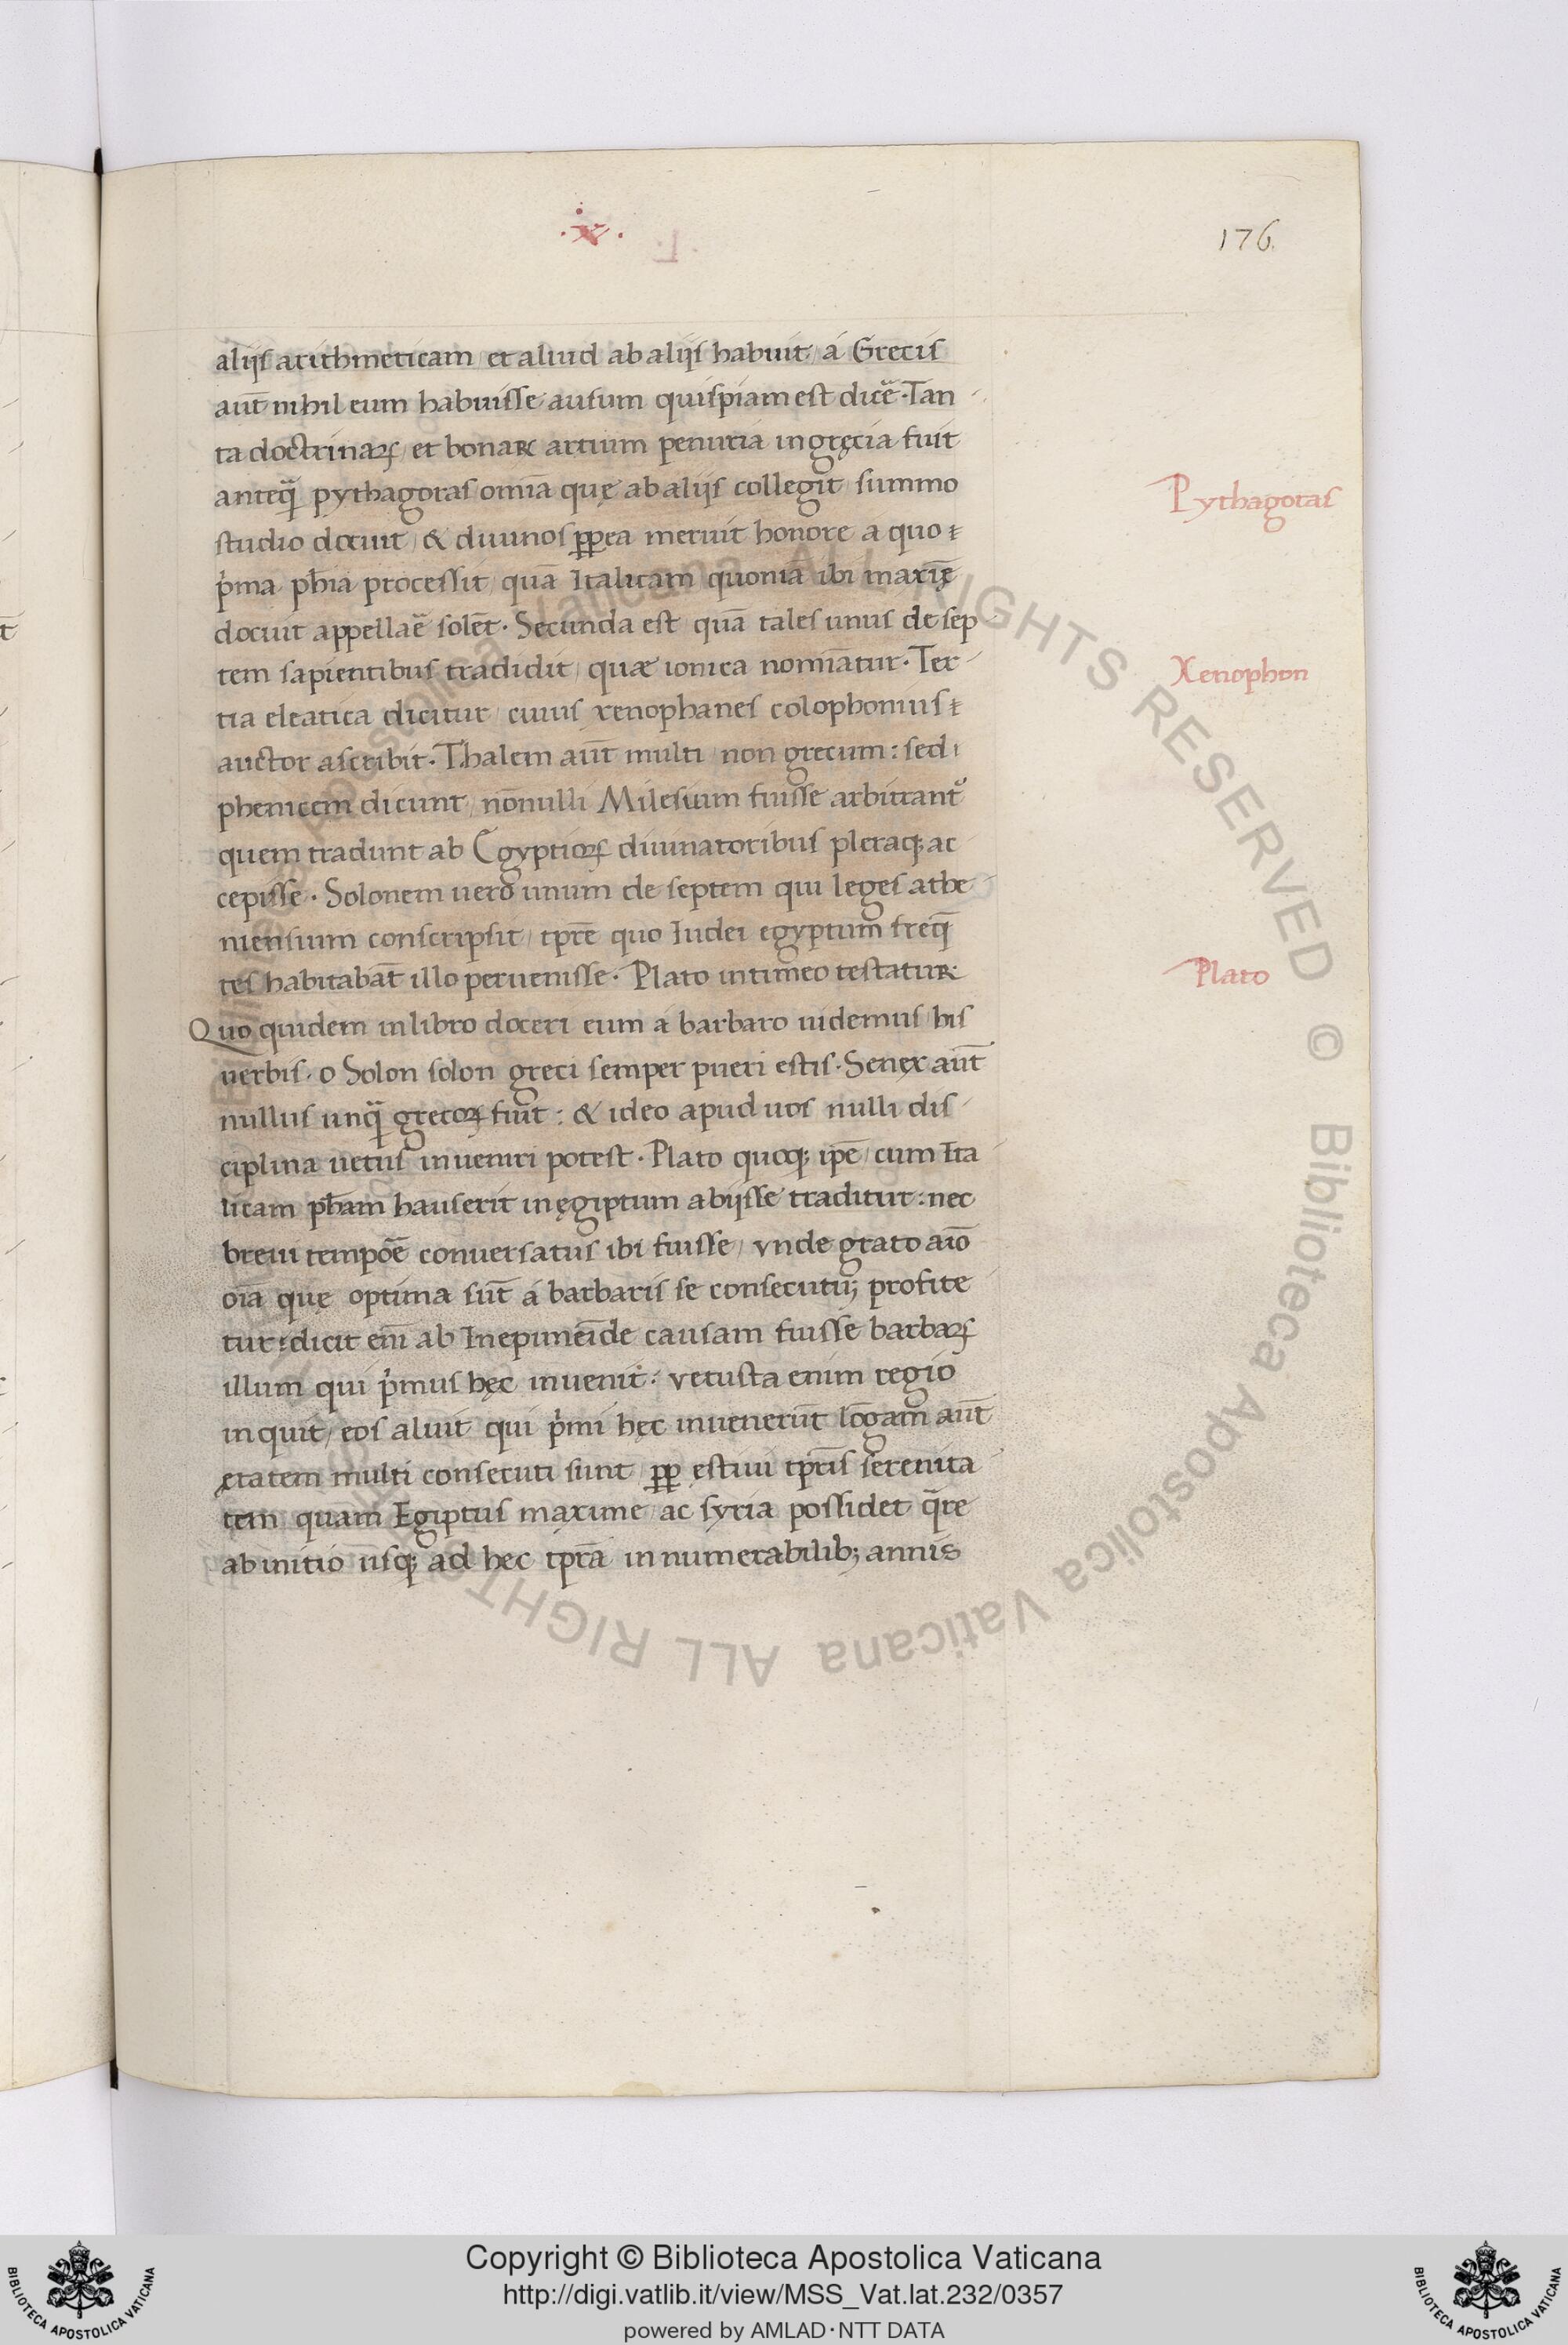 ·x·
176
alijs arithmeticam / et aliud ab alijs habuit / á Grecis
aut̄ nihil eum habuisse ausum quispiam est dicē̆ · Tan
ta doctrinaꝝ / et bonaꝝ artium penuria in gręcia fuit
anteq̄ꝫ pythagoras omīa quę ab alijs collegit / summo
studio docuit / & diuinos ꝓpea meruit honore a quo
p̍ma ph̄ia processit / quā Italicam quoniā ibi maxīę
docuit appellaē̆ solēt · Secunda est quā tales unus de sep
tem sapientibus tradidit / quæ ionica nomīatur · Ter
tia eleatica dicitur / cuius xenophanes colophonius
auctor ascribit · Thalem aut̄ multi non grecum : sed
phenicem dicunt / nōnulli Milesium fuisse arbitrant᷑
quem tradunt ab Egyptioꝝ diuinatoribus pleraqꝫ ac
cepisse · Solonem uero unum de septem qui leges athe
niensium conscripsit / tp̄re quo Iudei egyptum freq̄
tes habitabāt illo peruenisse · Plato in timeo testatur
Quo quidem in libro doceri eum a barbaro uidemus / his
uerbis · o Solon solon greci semper pueri estis · Senex aut̄
nullus unq̄ꝫ grecoꝝ fuit : & ideo apud uos nulli dis
ciplina uetus inueniri potest · Plato quoqꝫ ip̄e / cum Ita
licam ph̄am hauserit in ęgiptum abijsse traditur : nec
breui tempoē conuersatus ibi fuisse / vnde grato aīo
oīa quę optima sūt á barbaris se consecutūꝫ profite
tur : dicit em̄ ab Inepimeīde causam fuisse barbaꝝ
illum qui p̍mus hęc inuenit : vetusta enim regio
inquit / eos aluit qui p̍mi hęc inuenerūt lōgam aut̄
ętatem multi consecuti sunt / ꝓp ęstiui tp̄ris serenita
tem quam Egiptus maxime ac syria possidet q̄re
ab initio usqꝫ ad hec tp̄ra innumerabilibꝫ annis
Pythagoras
Xenophon
Plato
Copyright © Biblioteca Apostolica Vaticana
http://digi.vatlib.it/view/MSS_Vat.lat.232/0357
powered by AMLAD·NTT DATA
BIBLIOTECA APOSTOLICA VATICANA
BIBLIOTECA APOSTOLICA VATICANA
Biblioteca Apostolica Vaticana ALL RIGHTS RESERVED © Biblioteca Apostolica Vaticana ALL RIGHTS